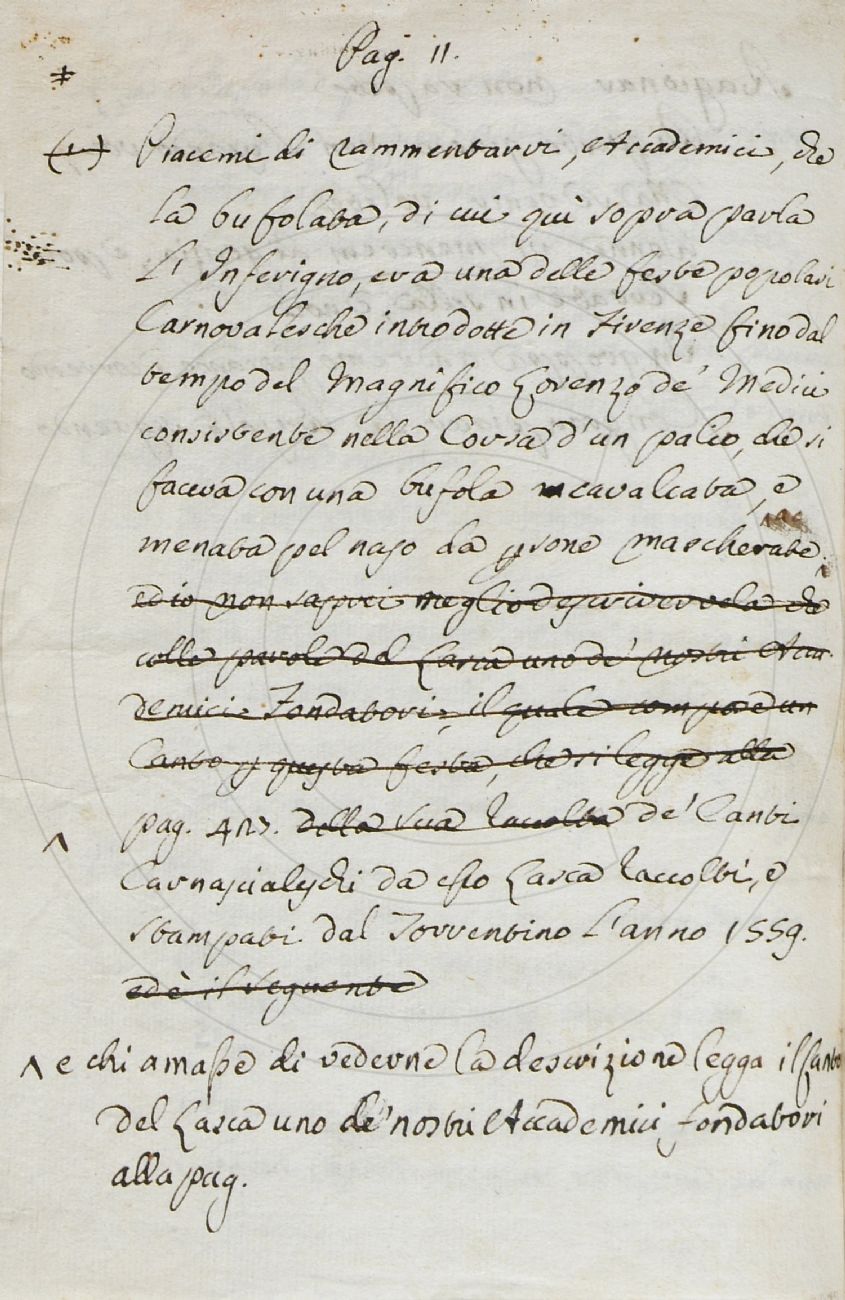 Pag. 11.
*
(1) Piacemi di rammentarvi, Accademici, che
la bufolata, di cui quì sopra parla
l'Inferigno, era una delle feste popolari
Carnovalesche introdotte in Firenze fino dal
tempo del Magnifico Lorenzo de' Medici
consistente nella Corsa d'un palio, che si
faceva con una bufola cavalcata, e
menata pel naso da psone mascherate.
ed io non saprei meglio descrivervela che
colle parole del Lasca uno de' nostri Acca-
demici Fondatori, il quale compose un
Canto p questa festa, che si legge alla
pag. 427. della sua raccolta de' Canti
^
Carnascialeschi da esso Lasca raccolti, e
stampati dal Torrentino l'anno 1559.
ed è il seguente
^ e chi amasse di vederne la descrizione legga il Canto
del Lasca uno de' nostri Accademici fondatori
alla pag.